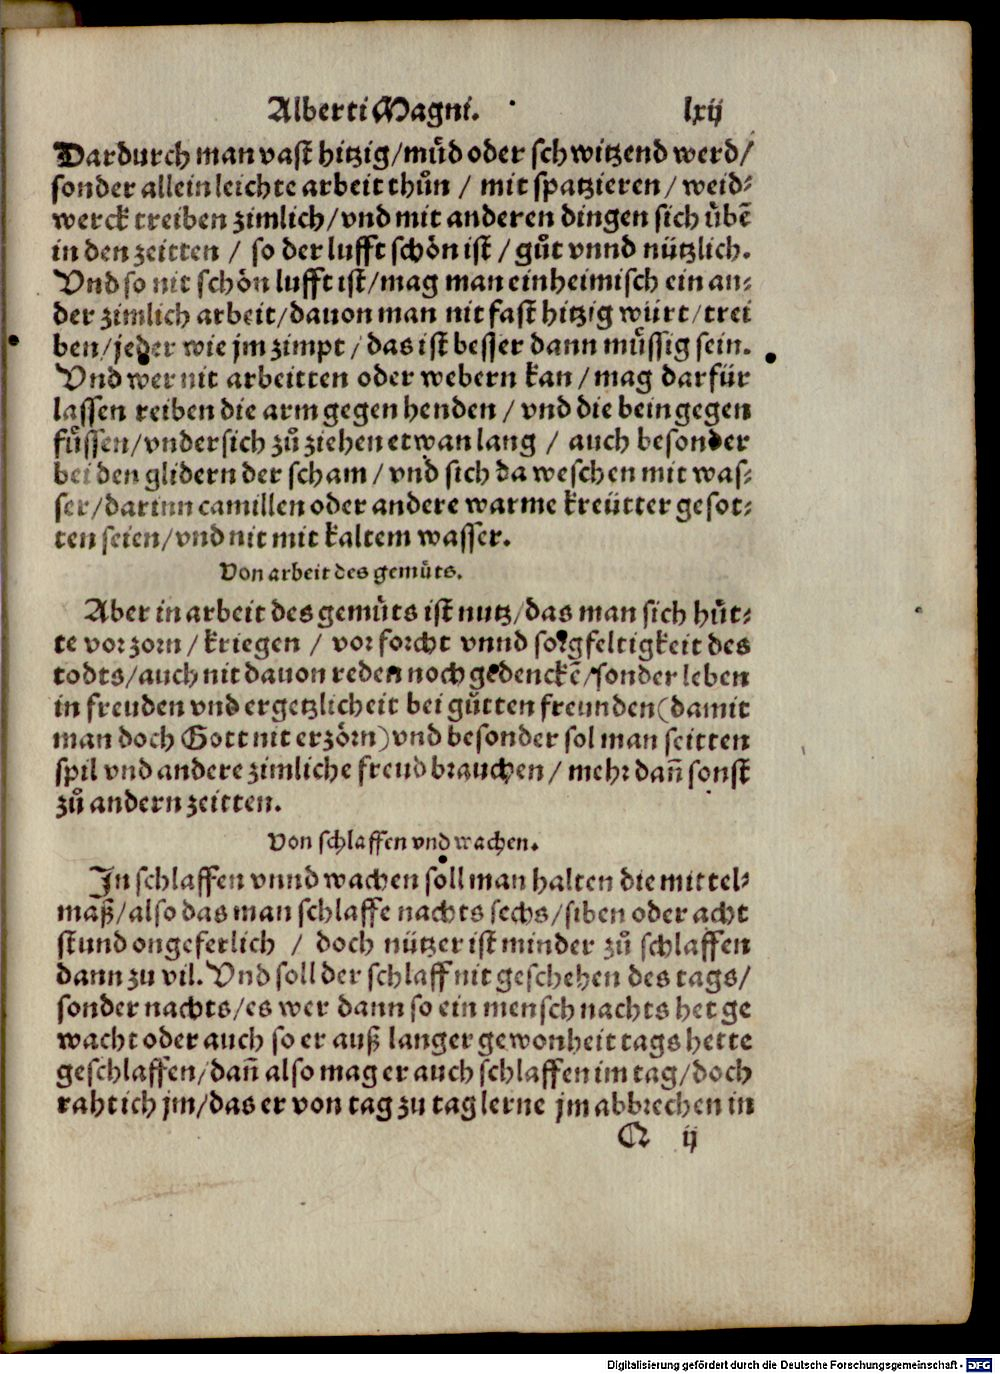 Alberti Magni. lxij
Dardurch man vast hitzig/muͤd oder schwitzend werd/
sonder allein leichte arbeit thuͦn / mit spatzieren / weid⸗
werck treiben zimlich/vnd mit anderen dingen sich uͤbẽ
in den zeitten / so der lufft schoͤn ist / guͦt vnnd nuͤtzlich.
Vnd so nit schoͤn lufft ist/mag man einheimisch ein an⸗
der zimlich arbeit/dauon man nit fast hitzig wuͤrt/trei
ben/jeder wie jm zimpt / das ist besser dann muͤssig sein.
Vnd wer nit arbeitten oder webern kan / mag darfuͤr
lassen reiben die arm gegen henden / vnd die bein gegen
fuͤssen/vndersich zuͦ ziehen etwan lang / auch besonder
bei den glidern der scham / vnd sich da weschen mit was⸗
ser/darinn camillen oder andere warme kreuͤtter gesot⸗
ten seien/vnd nit mit kaltem wasser.
Von arbeit des gemuͤts.
Aber in arbeit des gemuͤts ist nutz/das man sich huͤt⸗
te vor zorn / kriegen / vor forcht vnnd sorgfeltigkeit des
todts/auch nit dauon reden noch gedenckẽ/sonder leben
in freuden vnd ergetzlicheit bei guͦtten freunden(damit
man doch Gott nit erzoͤrn)vnd besonder sol man seitten
spil vnd andere zimliche freud brauchen / mehr dañ sonst
zuͦ andern zeitten.
Von schlaffen vnd wachen.
In schlaffen vnnd wachen soll man halten die mittel⸗
maß/also das man schlaffe nachts sechs/siben oder acht
stund ongeferlich / doch nuͤtzer ist minder zuͦ schlaffen
dann zu vil. Vnd soll der schlaff nit geschehen des tags/
sonder nachts/es wer dann so ein mensch nachts het ge
wacht oder auch so er auß langer gewonheit tags hette
geschlaffen/dañ also mag er auch schlaffen im tag/doch
raht ich jm/das er von tag zu tag lerne jm abbrechen in
Q ij
Digitalisierung gefördert durch die Deutsche Forschungsgemeinschaft - DFG